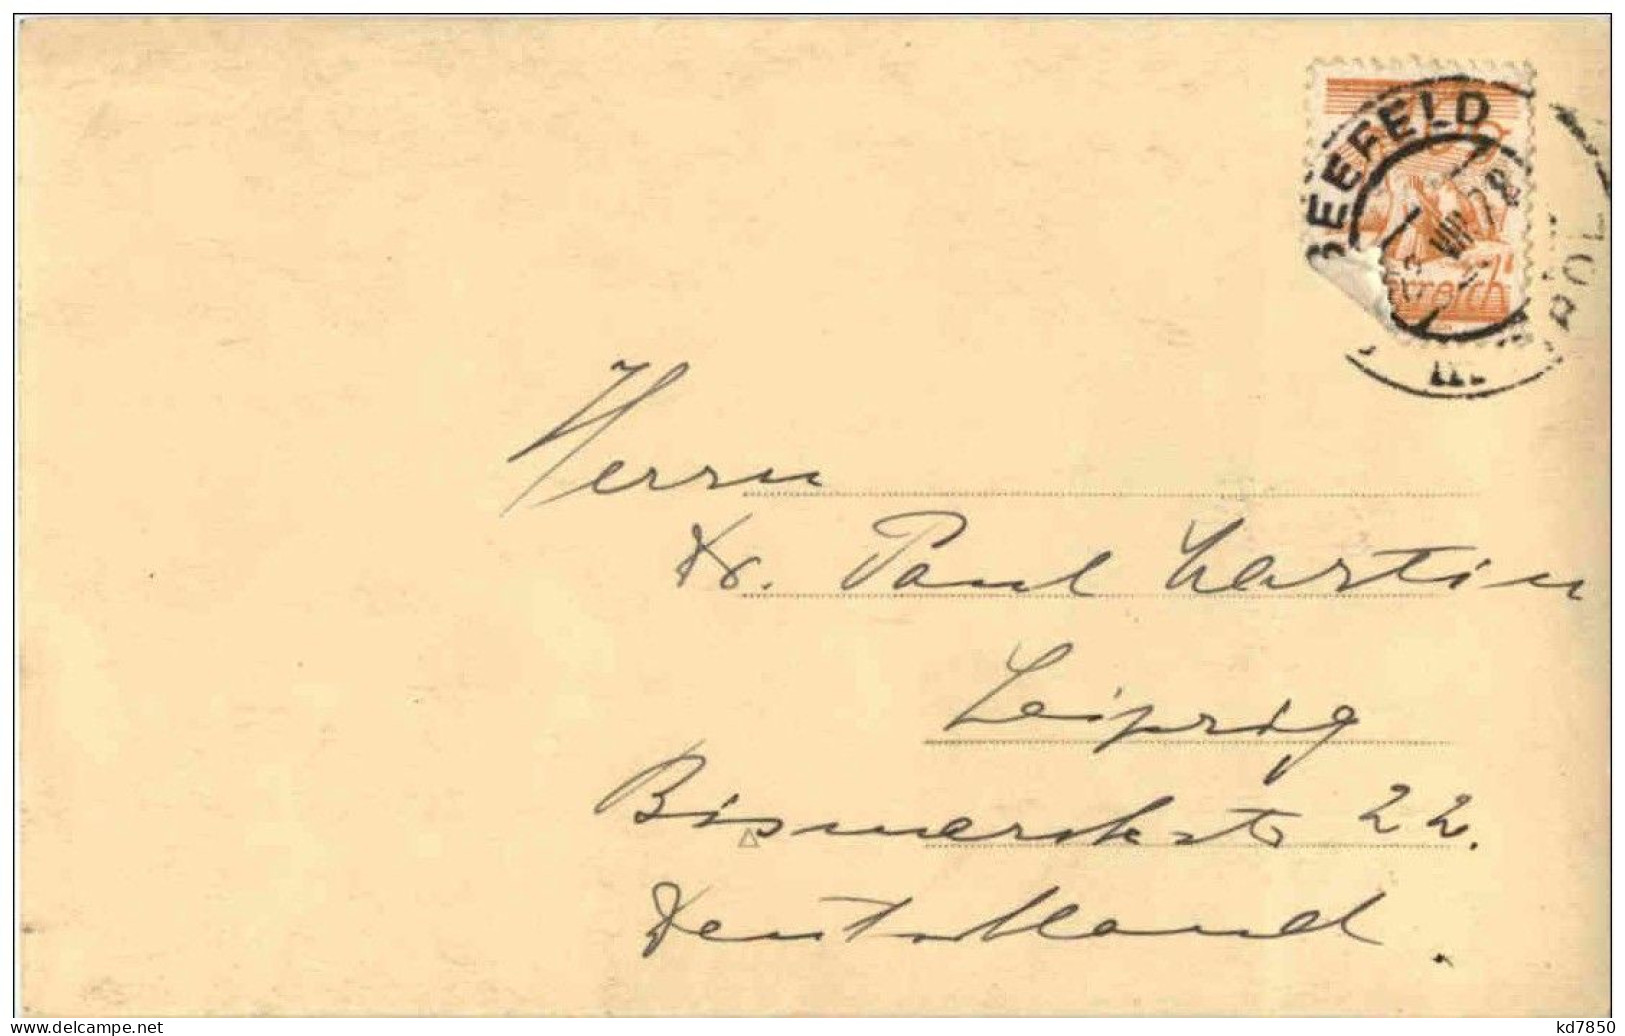 SEEFELD
TIROL
VIII
Herrn
Dr. Paul
Leipzig
Bismarckstr 22.
Deutschland.
www.delcampe.net
kd7850